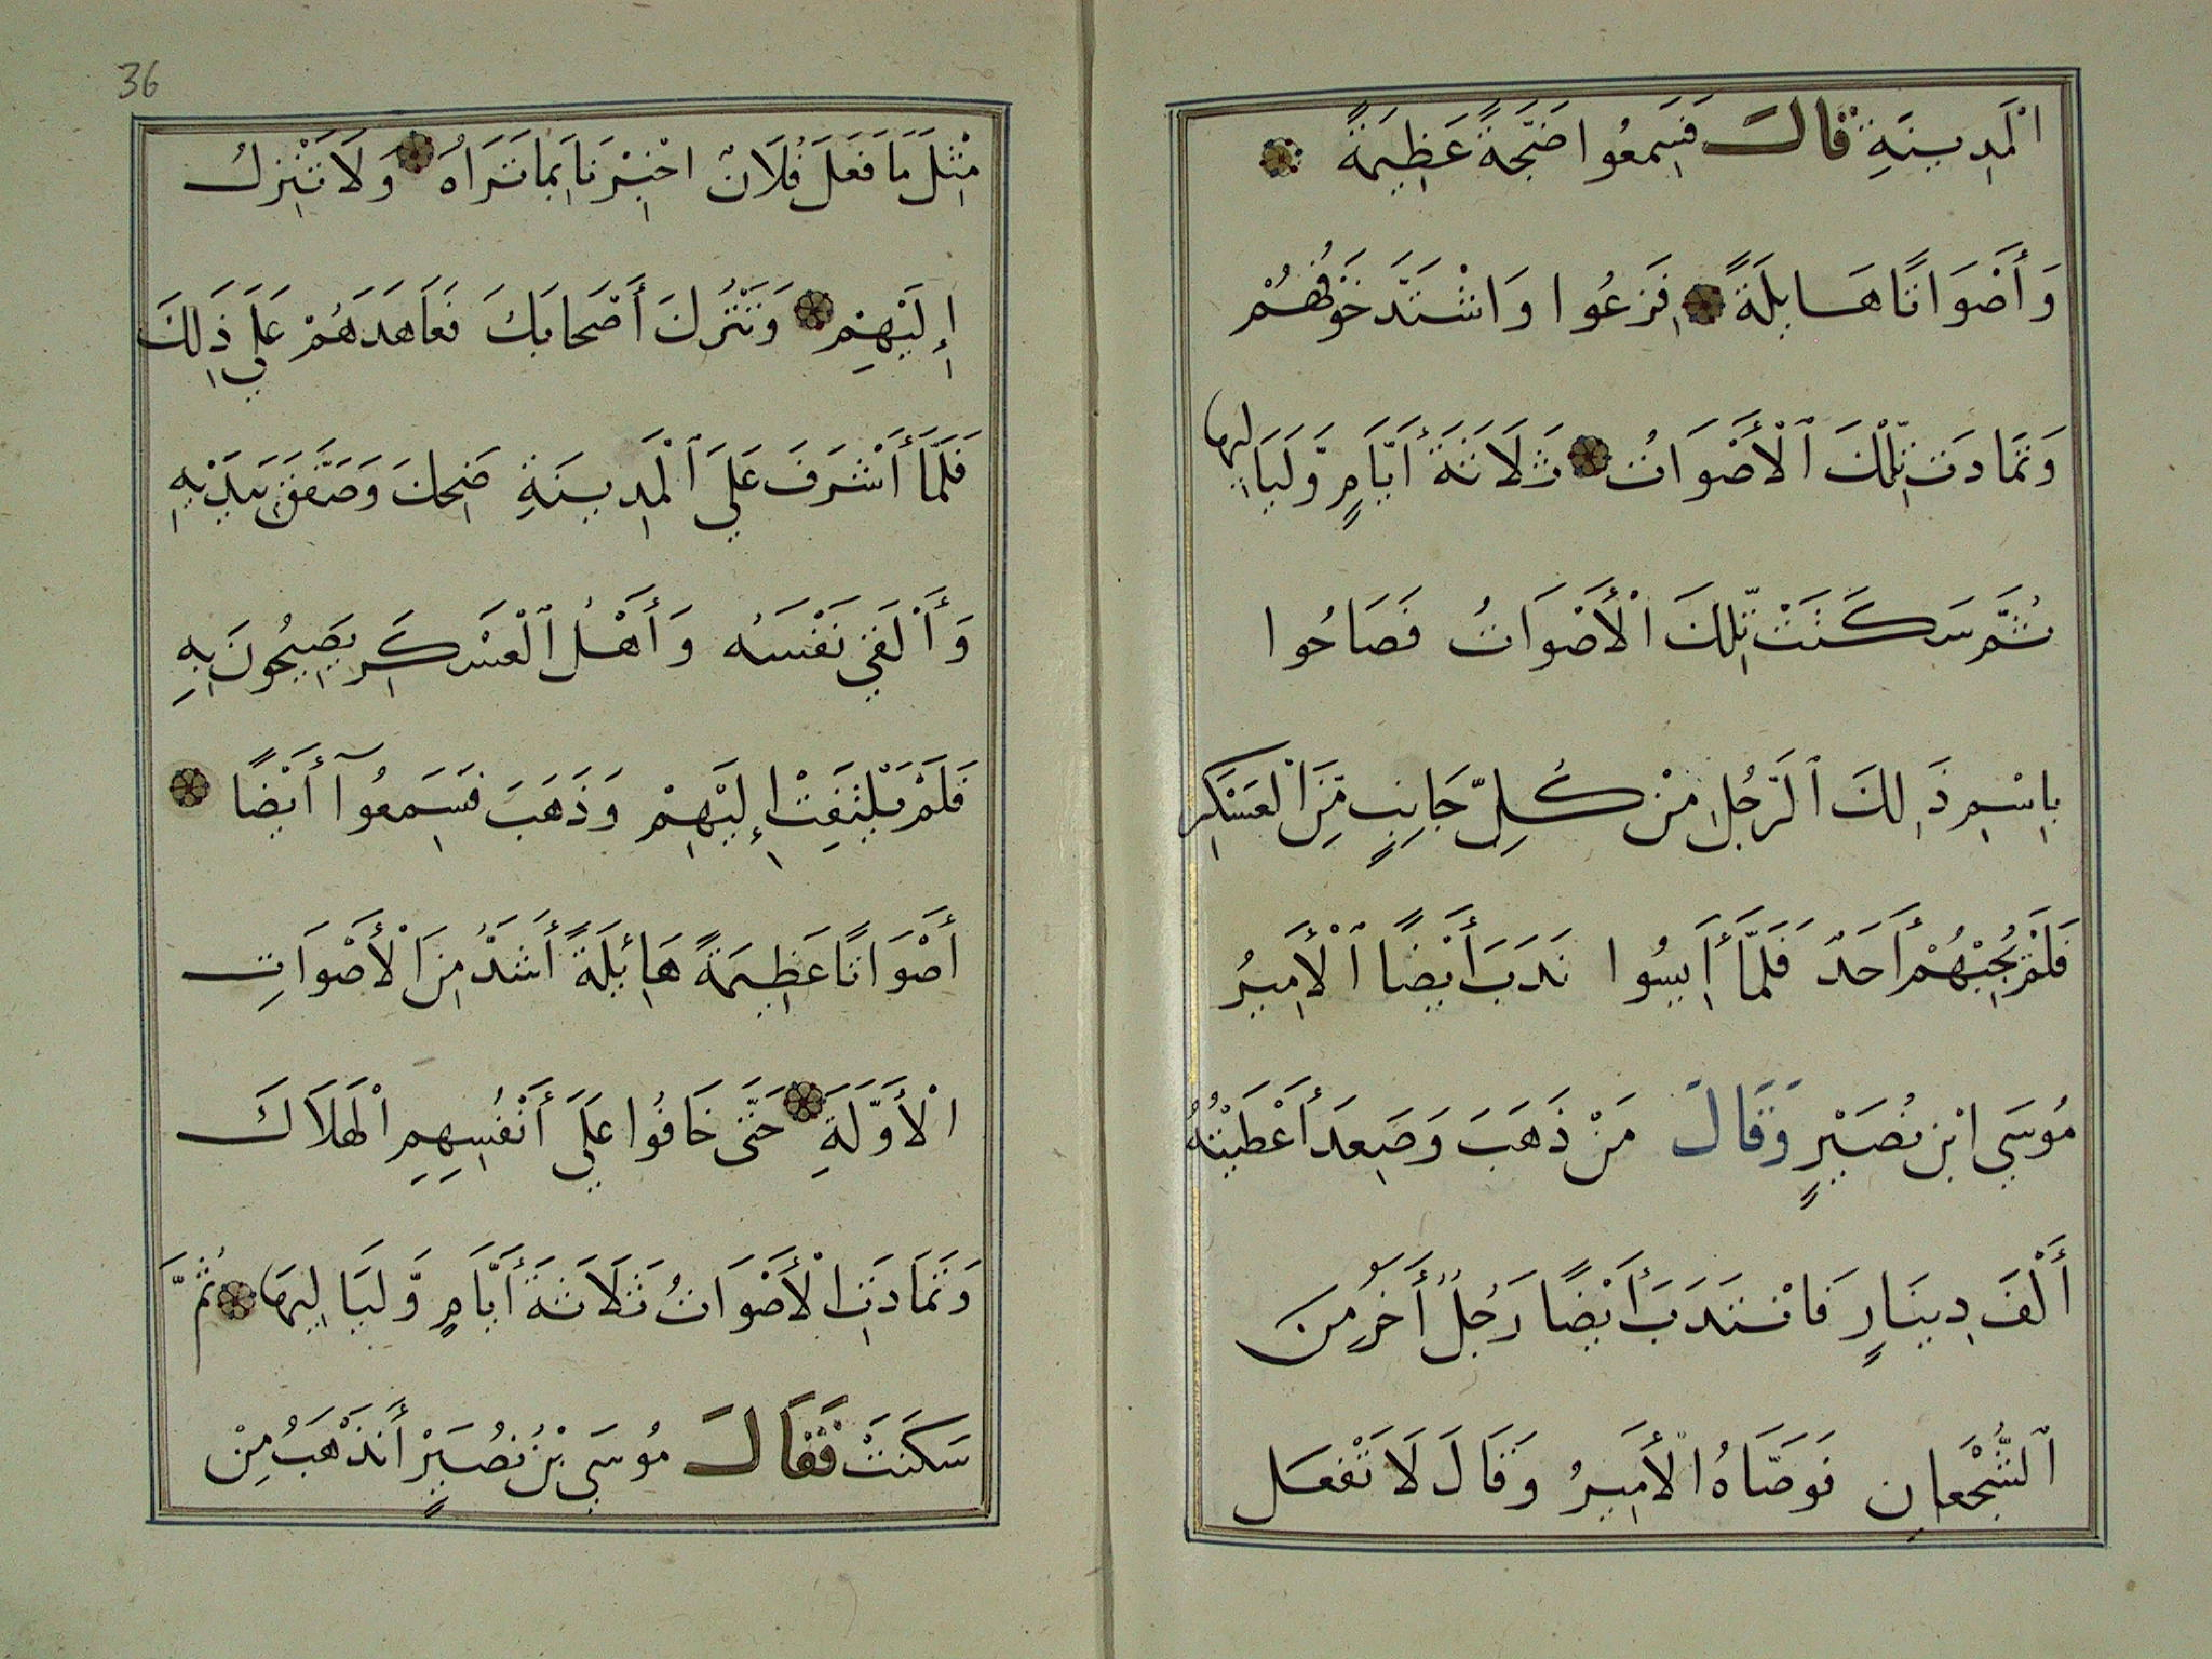 الْمَدِينَةِ قَالَ فَسَمِعُوا ضَجَّةً عَظِيمَةً
وَأَصْوَاتًا هَايِلَةً فَزِعُوا وَاشْتَدَّ خَوْفُهُمْ
وَتَمَادَتْ تِلْكَ ٱلْأَصْوَاتُ ثَلَاثَةَ أَيَّامٍ وَّلَيَالِيهَا
ثُمَّ سَكَنَتْ تِّلْكَ الْأَصْوَاتُ فَصَاحُوا
بِاسْمِ ذَلِكَ ٱلرَّجُلِ مِنْ كُلِّ جَانِبٍ مِّنَ الْعَسْكَرِ
فَلَمْ يُجِبْهُمْ أَحَدٌ فَلَمَّا أَيِسُوا نَدَبَ أَيْضًا ٱلْأَمِيرُ
مُوسَي ابْنِ نُصَيْرٍ وَقَالَ مَنْ ذَهَبَ وَصَعِدَ أَعْطَيْتُهُ
أَلْفَ دِينَارٍ فَانْتَدَبَ أَيْضًا رَجُلٌ أَخَرُ مِنَ
ٱلشُّجْعَانِ فَوَصَّاهُ الْأَمِيرُ وَقَالَ لَا تَفْعَل
36
مِثْلَ مَا فَعَلَ فُلَانٌ اخْبِرْنَا بِمَا تَرَاهُ وَلَا تَنْزِلُ
إِلَيْهِمْ وَتَتْرُكَ أَصْحَابَكَ فَعَاهَدَهُمْ عَلَي ذَلِكَ
فَلَمَّا أَشْرَفَ عَلَي ٱلْمَدِينَةِ ضَحِكَ وَصَفَّقَ بِيَدَيْهِ
وَأَلْقَي نَفْسَهُ وَأَهْلُ ٱلْعَسْكَرِ يَصِيحُونَ بِهِ
فَلَمْ يَلْتَفِتْ إِلَيْهِمْ وَذَهَبَ فَسَمِعُوآ أَيْضًا
أَصْوَاتًا عَظِيمَةً هَائِلَةً أَشَدُّ مِنَ الْأَصْوَاتِ
الْأَوَّلَةِ حَتَّى خَافُوا عَلَي أَنْفُسِهِمِ الْهَلَاكَ
وَتَمَادَتِ الْأَصْوَاتُ ثَلَاثَةَ أَيَّامٍ وَّلَيَالِيهَا ثُمَّ
سَكَنَتْ فَقَالَ مُوسَي بْنُ نُصَيْرٍ أَنَذْهَبُ مِنْ